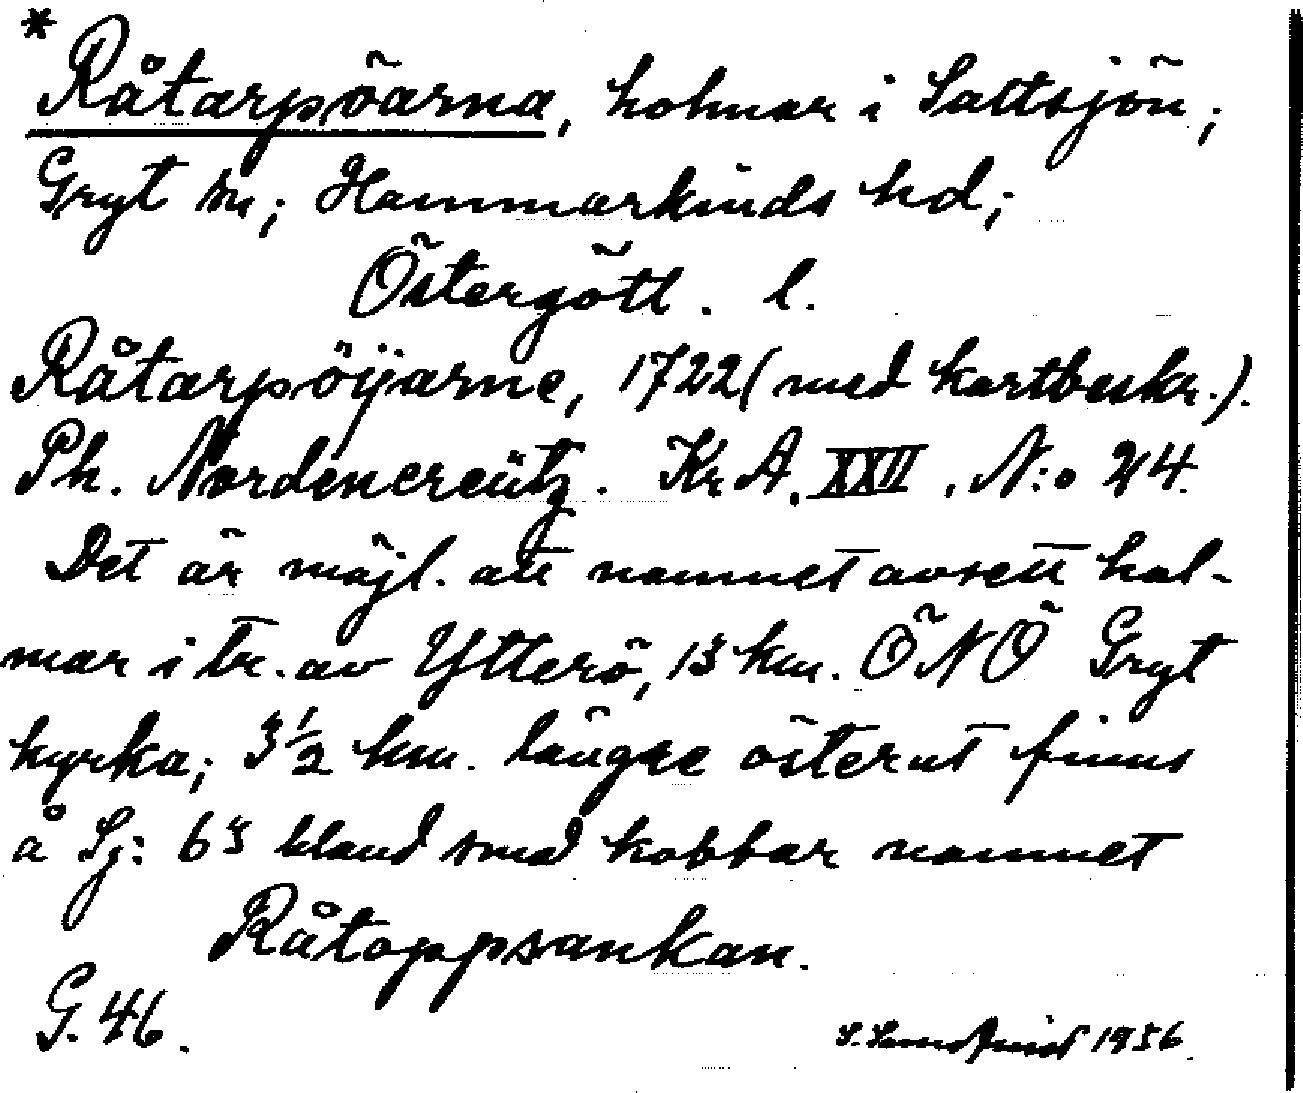 * Råtarpöarna, holmar i Saltsjön;
Gryt sn; Hammarkinds hd;
Östergötl. l.
Råtarpöÿarne, 1722 (med kartbeskr.).
Ph. Nordencreütz. Kr A. XXII. N:o 24.
Det är möjl. att namnet avsett hol-
mar i tr. av Ytterö, 15 km. ÖNÖ Gryt
kyrka; 3½ km. längre österut finns
å Sj: 65 bland små kobbar namnet
Råtoppsankan.
G. 46.
1956